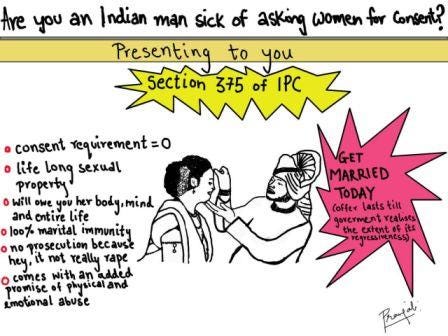 Are you an Indian man sick of asking women for consent?
Presenting to you
Section 375 of IPC
consent requirement = 0
life long sexual
property
will owe you her body, mind
and entire life
100% marital immunity
no prosecution because
hey, it not really rape
comes with an added
promise of physical and
emotional abuse
GET
MARRIED
TODAY
(offer lasts till
goverment realises
the extent of its
regressiveness)
Pranjali